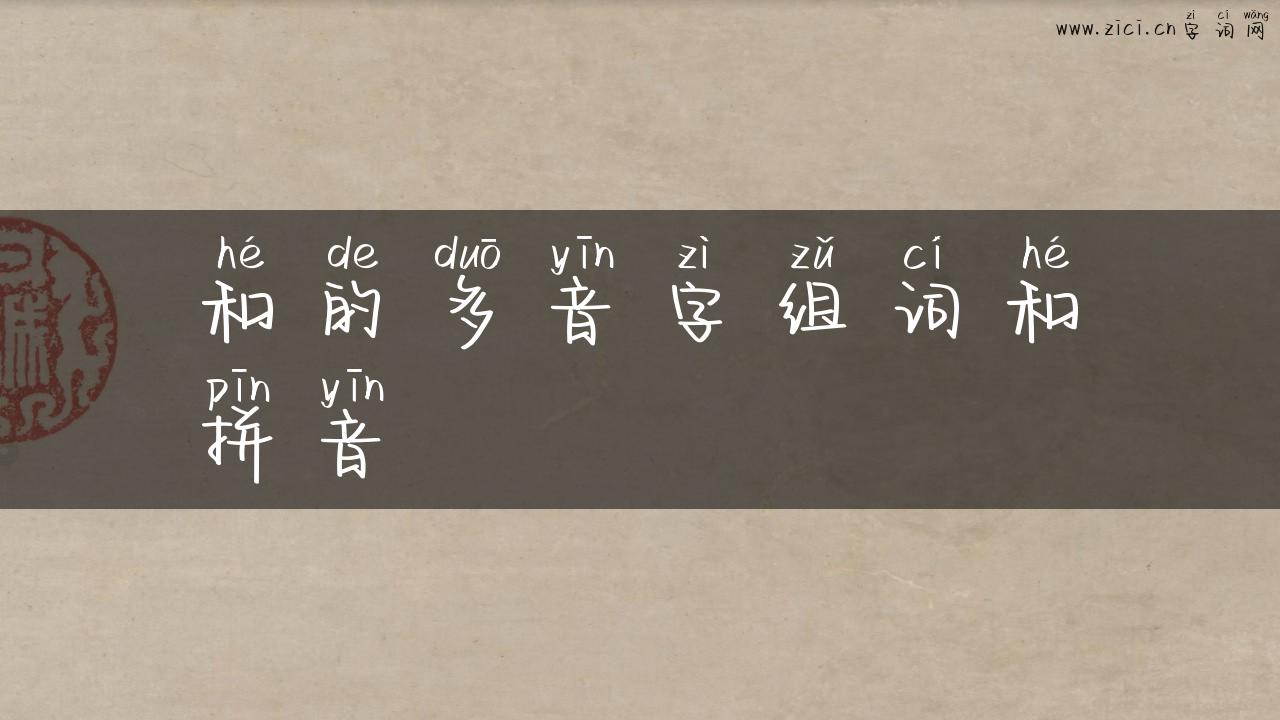 zì cí wǎng
www.zici.cn 字词网
hé de duō yīn zì zǔ cí hé
和的多音字组词和
pīn yīn
拼音